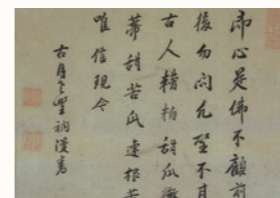 即心是佛不顧前
後勿問凡聖不具
古人糟粕甜瓜徹
蒂甜苦瓜連根苦
唯信現今
古月
衲漫書